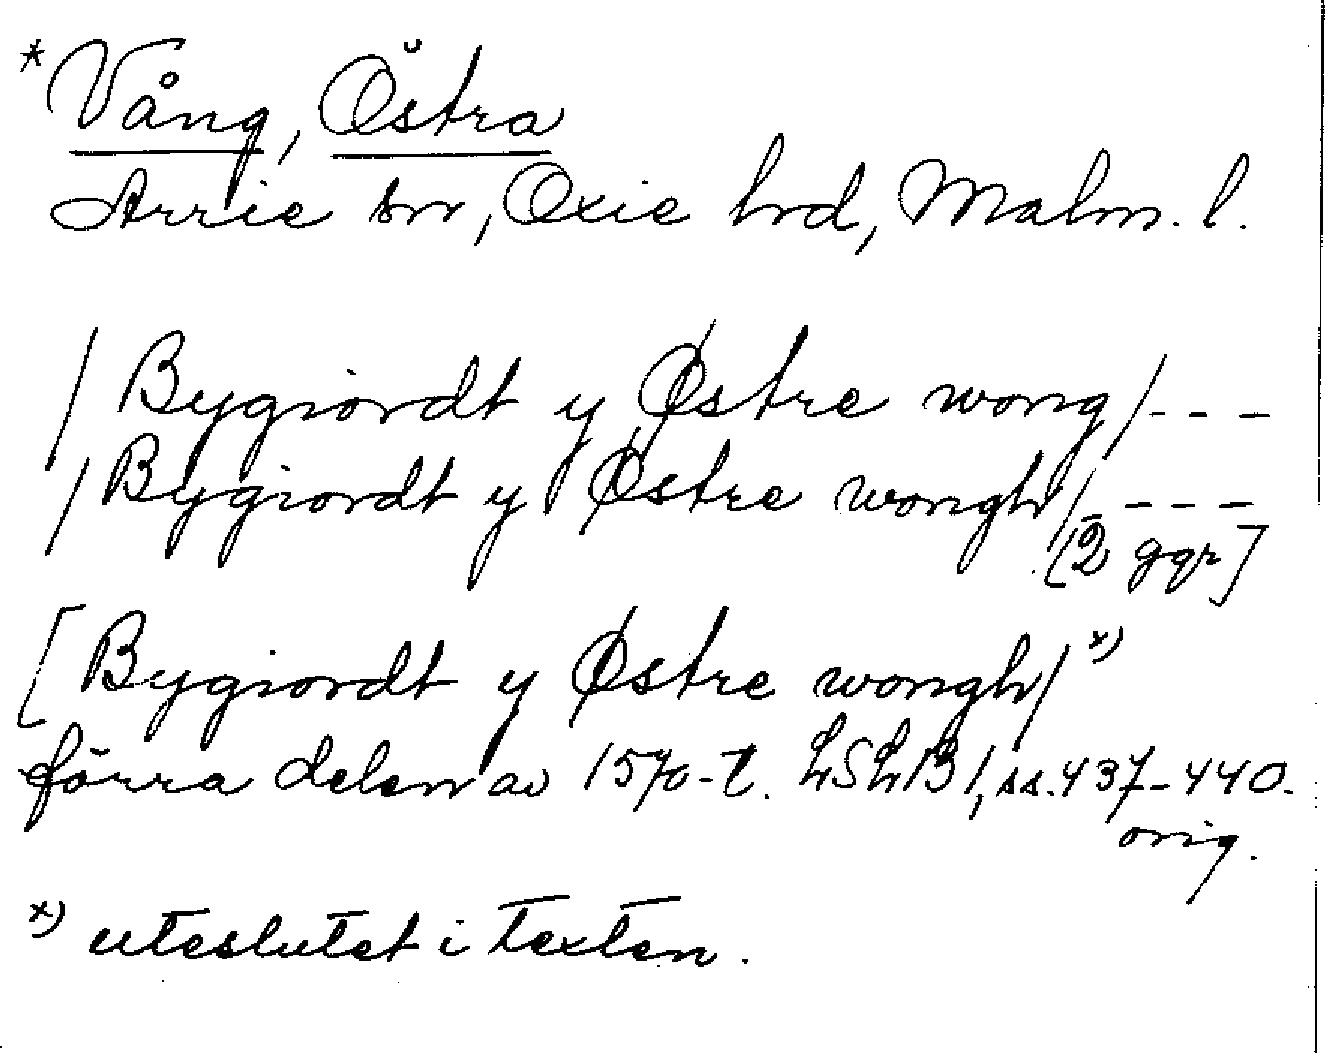 *Vång, Östra
Arrie sn, Oxie hrd, Malm. l.
/Bygiordt y Østre wong/---
/Bygiordt y Østre wongh/----
[2 ggr]
[Bygiordt y Østre wongh/ x)
förra delen av 1570-t. LSLB 1, ss. 437-440.
orig.
x) uteslutet i texten.